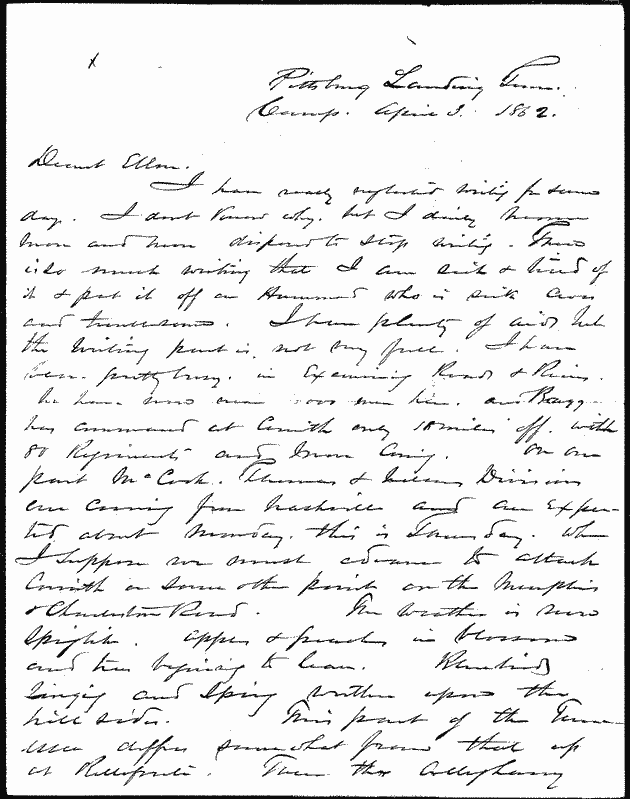 x
Pittsburg Landing Tenn.
Camp. April 3. 1862.
Dearest Ellen.
I have really neglected writing for some
days. I dont know why. but I daily become
more and more disposed to stop writing. There
is so much writing that I am sick & tired of
it & put it off on Hammond who is sick cross
and troublesome. I have plenty of aids but
the writing part is not very full. I have
been pretty busy. in Examining Roads & Rivers.
We have now near 000 men here. and Beaureg
has command at Corinth only 18 miles off, with
80 Regiments and more coming. On our
part McCook. Thomas & Nelsons Divisions
are coming from Nashville and are expec-
ted about Monday. this is Thursday. when
I suppose we must advance to attack
Corinth or some other point on the Memphis
& Charleston Road. The weather is now
Springlike. apples & peaches in blossom
and trees beginning to leave. Bluebirds
Singing and Spring written upon the
hill sides. This part of the Tenne-
ssee differs somewhat from that up
at Bellefonte. There the Alleghany